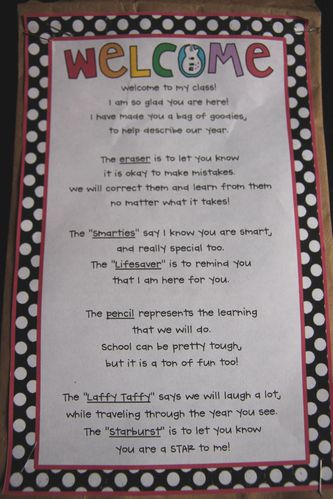 WELCOME
Welcome to my class!
I am so glad you are here!
I have made you a bag of goodies,
to help describe our year.
The eraser is to let you know
it is okay to make mistakes.
We will correct them and learn from them
no matter what it takes!
The "Smarties" say I know you are smart,
and really special too.
The "Lifesaver" is to remind you
that I am here for you.
The pencil represents the learning
that we will do.
School can be pretty tough,
but it is a ton of fun too!
The "Laffy Taffy" says we will laugh a lot,
while traveling through the year you see.
The "Starburst" is to let you know
you are a STAR to me!